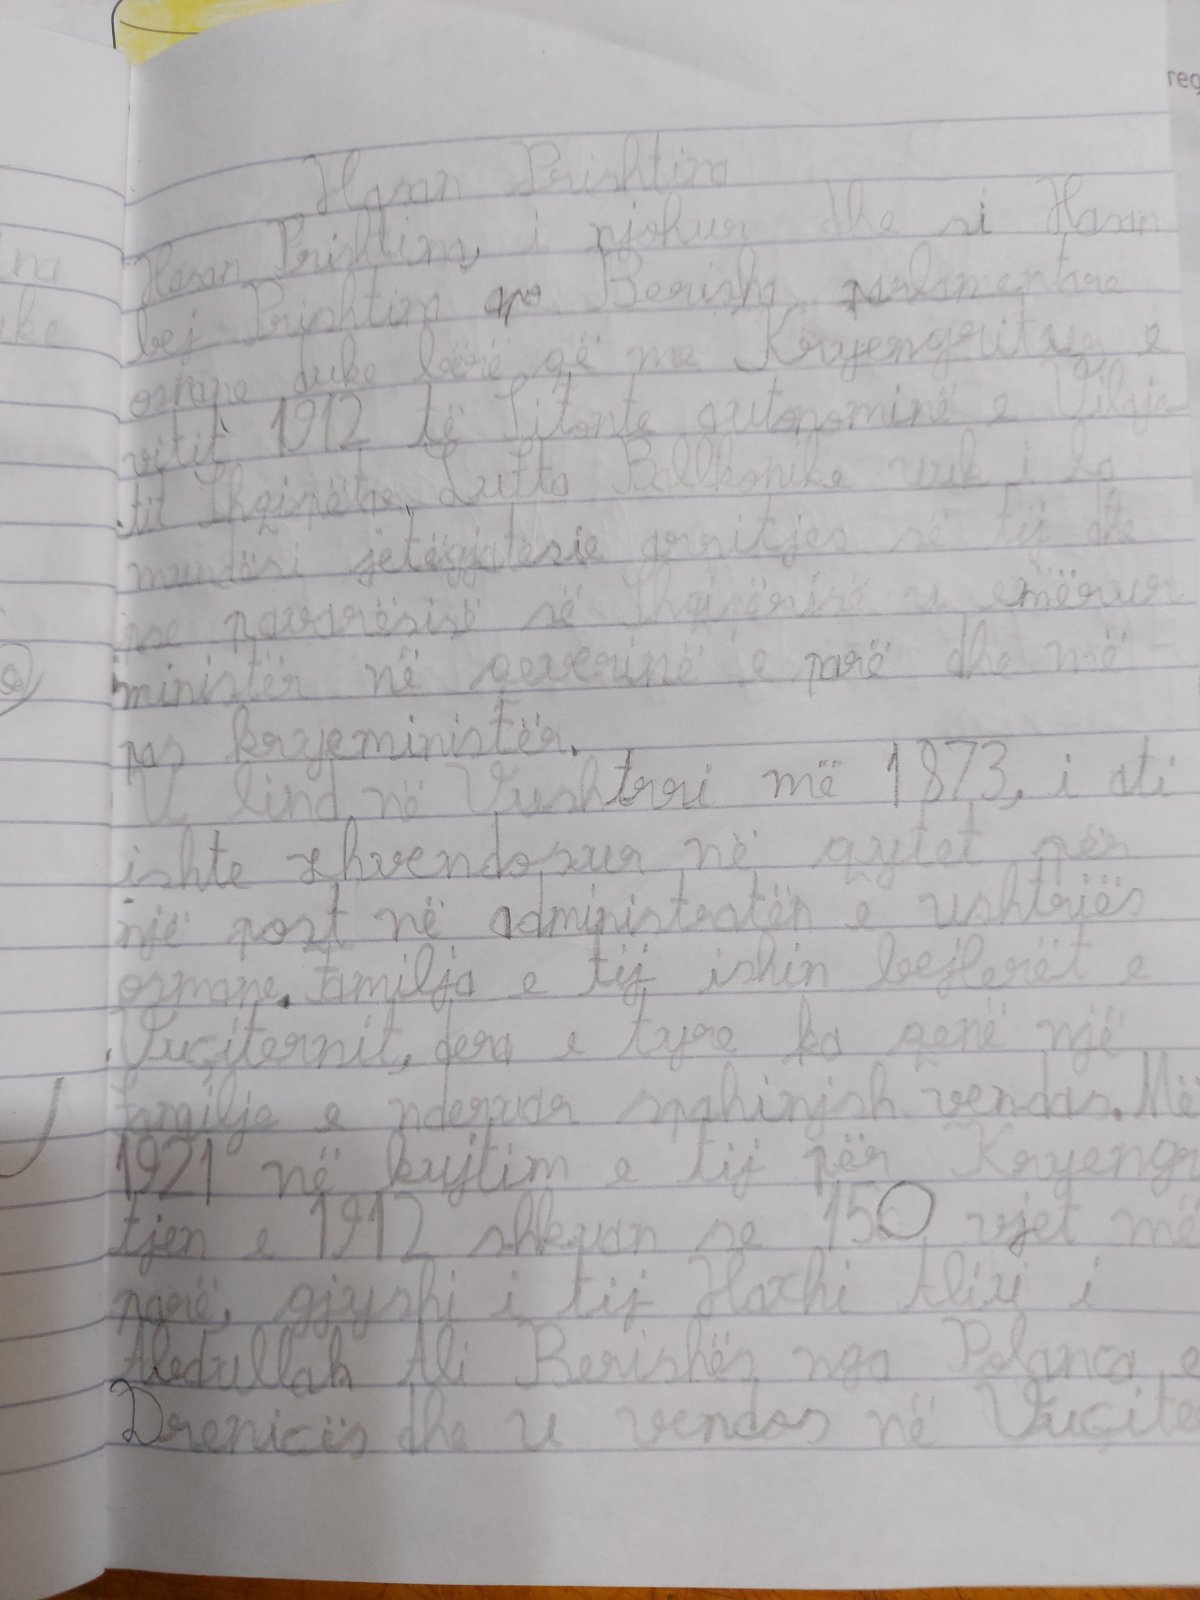 Hasan Prishtina
Hasan Prishtina, i njohur dhe si Hasan
bej Prishtina apo Berisha, parlamentare
osmane duke bërë që me Kryengritjen e
vitit 1912 të
autonominë e Vilaje
tit Shqipëtar. Lufta Ballkanike nuk i la
mundësi jetëgjatësie arritjes së tij dhe
pse pavarësisë së Shqipërisë u emërur
ministër në qeverinë e parë dhe më
pas kryeministër.
U lind në Vushtrri më 1873, i ati
ishte zhvendosur në qytet për
një post në administratën e ushtrisë
osmane. Familja e tij ishin bejlerët e
Vuçiternit, dera e tyre ka qenë një
familje e nderuar spahinjsh vendas. Më
1921 në kujtim e tij për Kryengr
tjen e 1912 shkruan se 150 vjet më
parë, gjyshi i tij Haxhi Aliu i
Abdullah Ali Berishës nga Polanca e
Drenicës dhe u vendos në Vuçite
na
uke
e
req